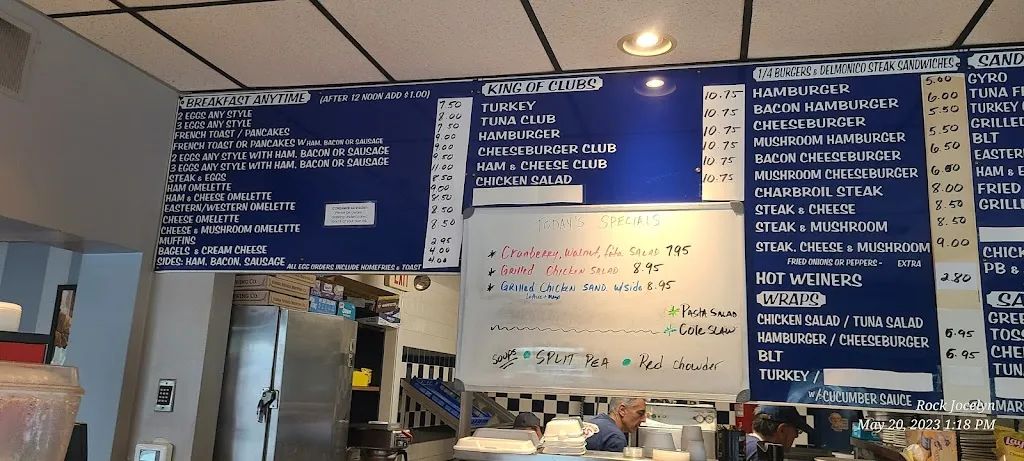 BREAKFAST ANYTIME (AFTER 12 NOON ADD $1.00)
2 EGGS ANY STYLE 7.50
3 EGGS ANY STYLE 8.00
FRENCH TOAST / PANCAKES 7.50
FRENCH TOAST OR PANCAKES W HAM, BACON OR SAUSAGE 9.00
2 EGGS ANY STYLE WITH HAM, BACON OR SAUSAGE 9.00
3 EGGS ANY STYLE WITH HAM, BACON OR SAUSAGE 9.50
STEAK & EGGS 11.00
HAM OMELETTE 8.50
HAM & CHEESE OMELETTE 9.00
EASTERN/WESTERN OMELETTE 8.50
CHEESE OMELETTE 8.50
CHEESE & MUSHROOM OMELETTE 8.50
MUFFINS 2.95
BAGELS & CREAM CHEESE 4.00
SIDES: HAM, BACON, SAUSAGE 4.00
ALL EGG ORDERS INCLUDE HOMEFRIES & TOAST
EXIT
KING OF CLUBS
TURKEY 10.75
TUNA CLUB 10.75
HAMBURGER 10.75
CHEESEBURGER CLUB 10.75
HAM & CHEESE CLUB 10.75
CHICKEN SALAD 10.75
TODAY'S SPECIALS
* Cranberry, Walnut, feta SALAD 7.95
* Grilled Chicken SALAD 8.95
* Grilled Chicken SAND. w/side 8.95
* PASTA SALAD
* Cole SLAW
SOUPS • SPLIT PEA • Red Chowder
1/4 BURGERS & DELMONICO STEAK SANDWICHES
HAMBURGER 5.00
BACON HAMBURGER 6.00
CHEESEBURGER 5.50
MUSHROOM HAMBURGER 5.50
BACON CHEESEBURGER 6.50
MUSHROOM CHEESEBURGER 6.00
CHARBROIL STEAK 8.00
STEAK & CHEESE 8.50
STEAK & MUSHROOM 8.50
STEAK, CHEESE & MUSHROOM 9.00
FRIED ONIONS OR PEPPERS - EXTRA
HOT WEINERS 2.80
WRAPS
CHICKEN SALAD / TUNA SALAD 6.95
HAMBURGER / CHEESEBURGER 6.95
BLT
TURKEY /
W/ CUCUMBER SAUCE
SAND
GYRO
TUNA
TURKEY
GRILLED
BLT
EASTER
HAM & E
FRIED
GRILL
CHIC
PB &
SA
GREE
TOSS
CHE
TUNA
MAR
Rock Jocelyn
May 20, 2023 1:18 PM